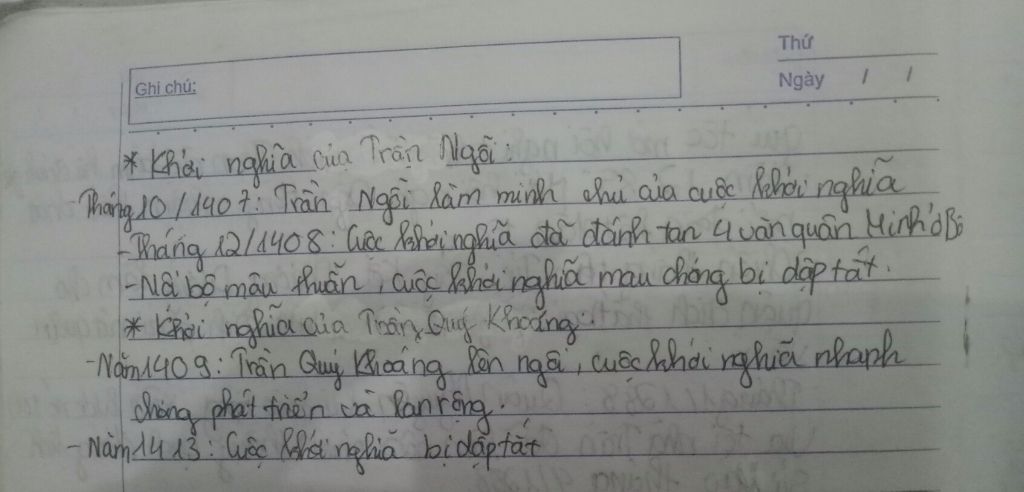 Thứ
Ghi chú:
Ngày / /
* Khởi nghĩa của Trần Ngỗi:
Tháng 10/1407: Trần Ngỗi làm minh chủ của cuộc khởi nghĩa
- Tháng 12/1408: Cuộc khởi nghĩa đã đánh tan 4 vàn quân Minh ở Bô
- Nội bộ mâu thuẫn, cuộc khởi nghĩa mau chóng bị dập tắt.
* Khởi nghĩa của Trần Quý Khoáng.
- Năm 1409: Trần Quý Khoáng lên ngôi, cuộc khởi nghĩa nhanh
chóng phát triển và lan rộng.
- Năm 1413: Cuộc khởi nghĩa bị dập tắt